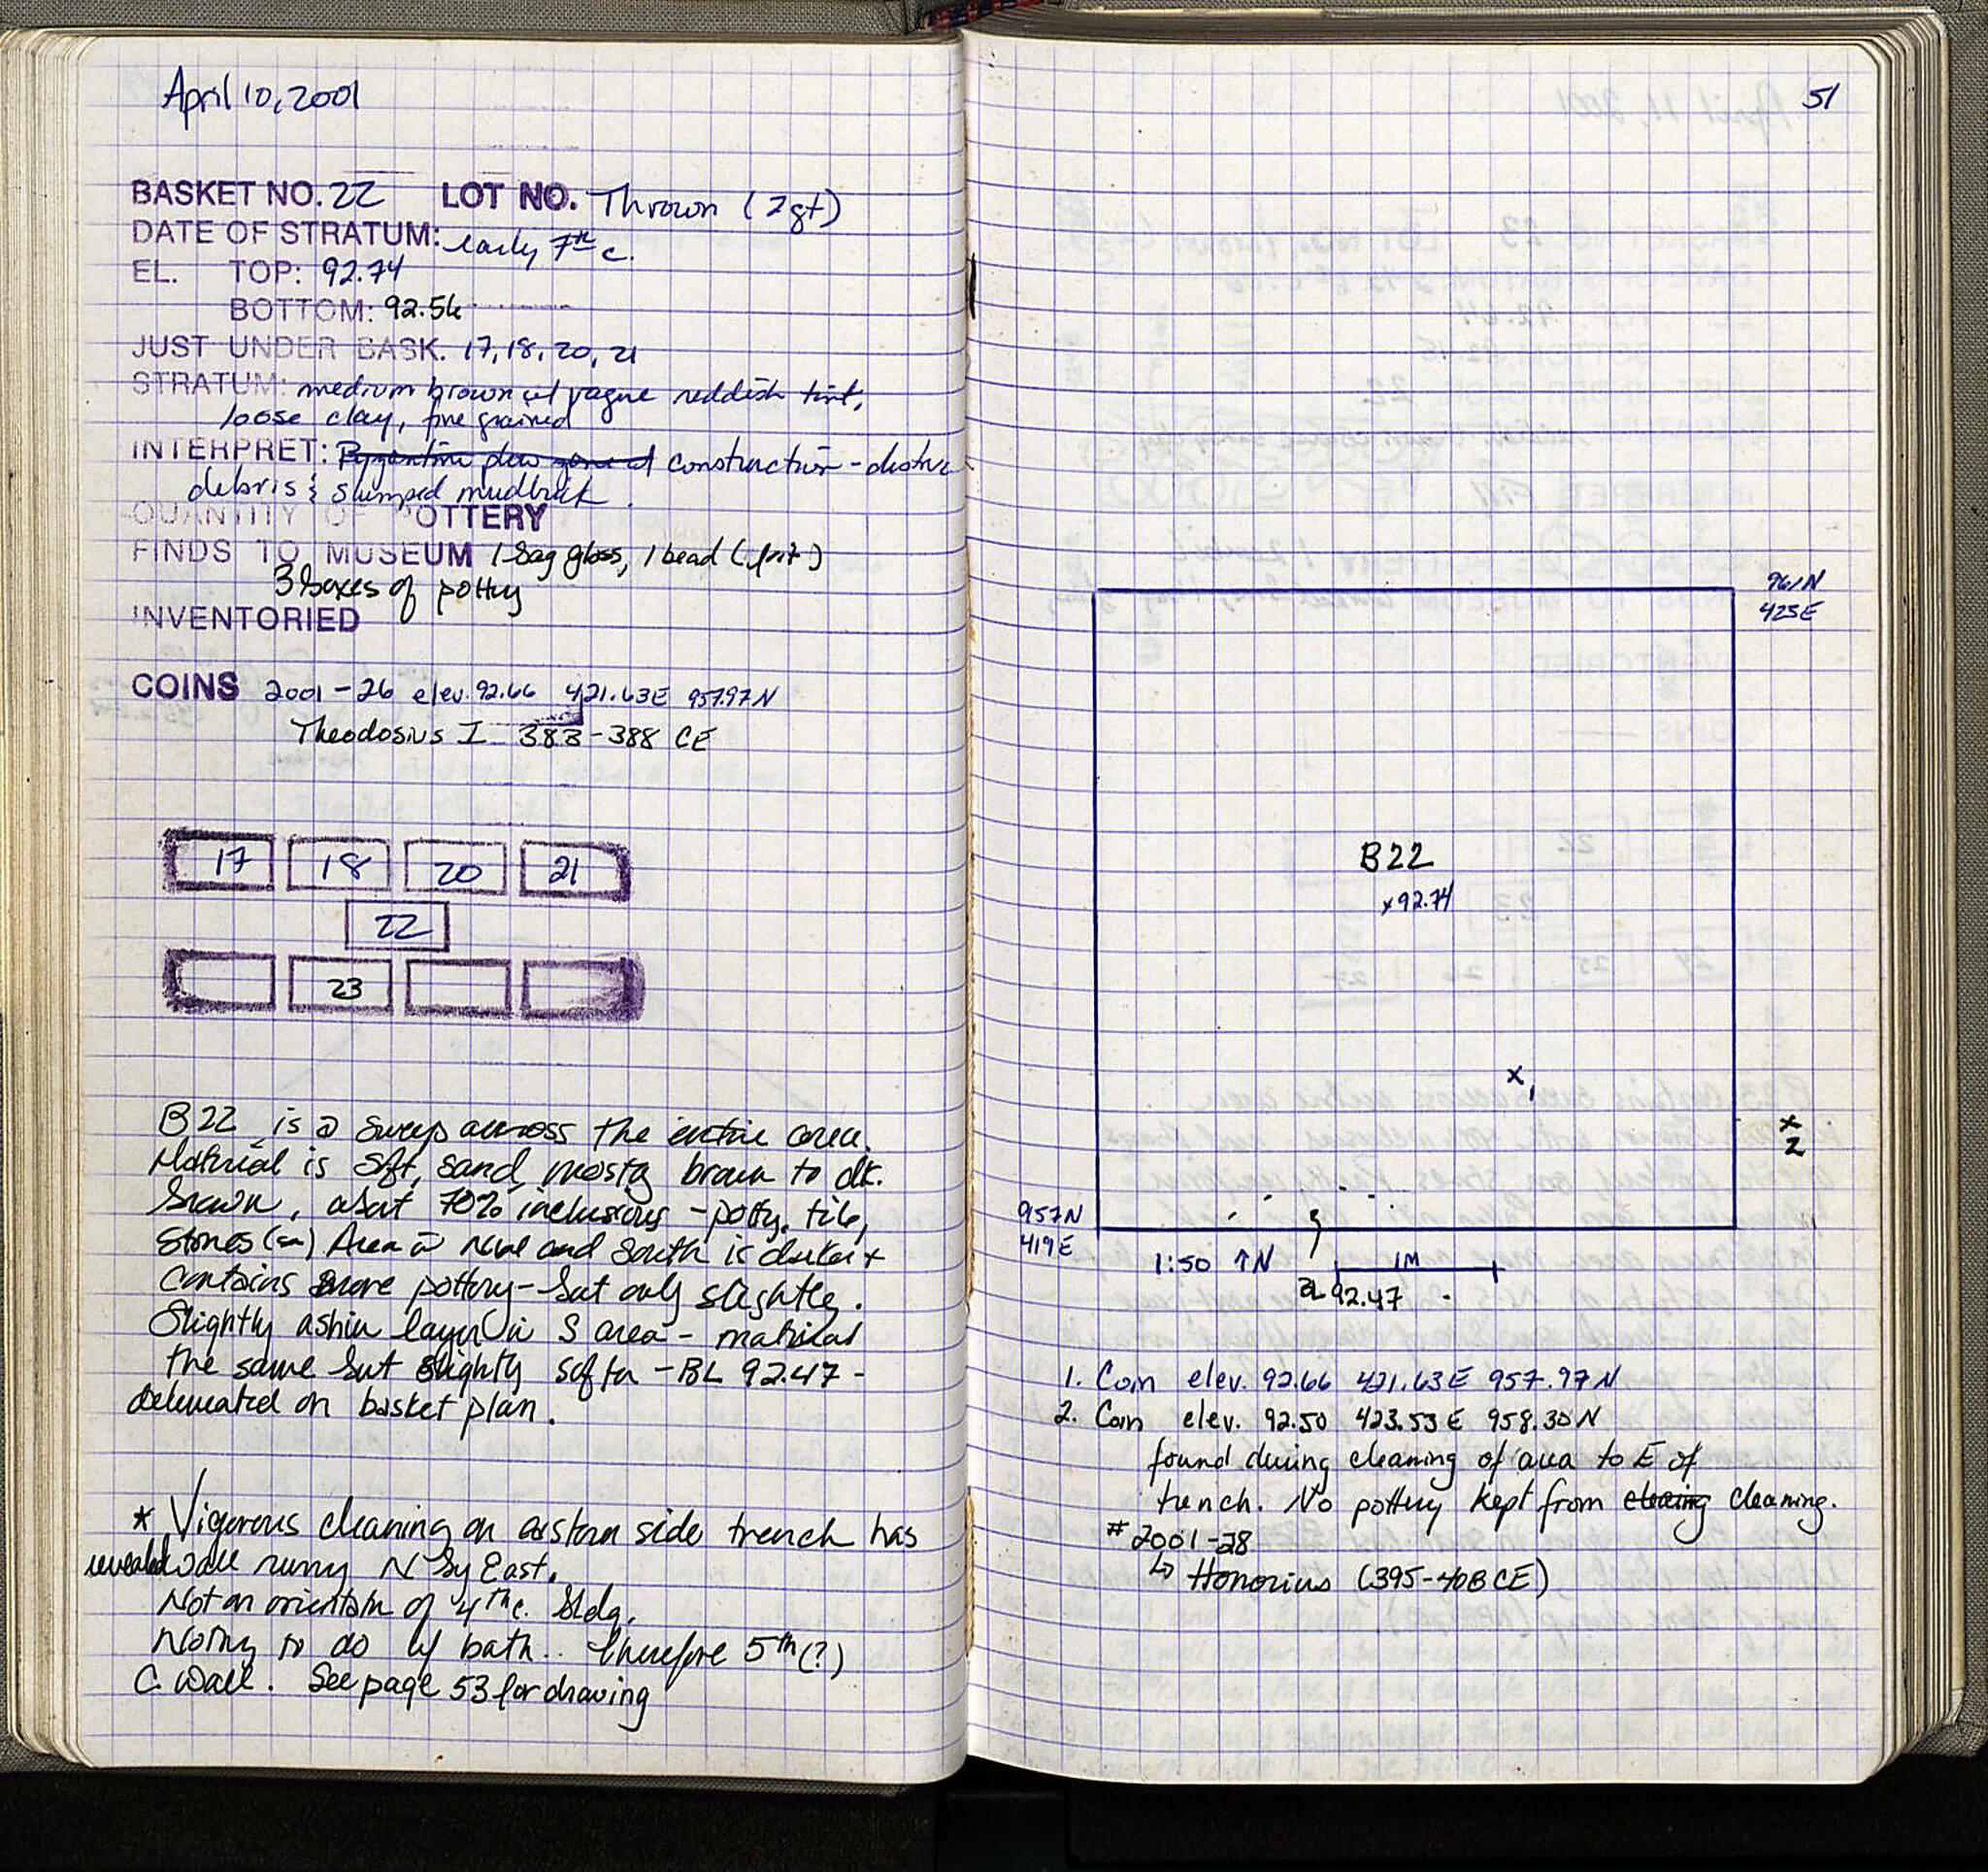 April 10, 2001
BASKET NO. 22 LOT NO. Thrown (zgt)
DATE OF STRATUM: early 7th c.
EL. TOP: 92.74
BOTTOM: 92.56
JUST UNDER BASK. 17, 18, 20, 21
STRATUM: medium brown w/ vague reddish tint,
loose clay, fine grained
INTERPRET: Byzantine construction - destruc
debris & slumped mudbrick.
QUANTITY OF POTTERY
FINDS TO MUSEUM 1 bag glass, 1 bead
3 boxes of pottery
INVENTORIED
COINS 2001-26 elev. 92.66 421.63E 957.97N
Theodosius I 383-388 CE
17 18 20 21
22
23
B22 is a sweep across the entire area.
Material is soft, sand, mostly brown to dk.
brown, about 70% inclusions - potty, tile,
stones (sm) Area and South is darker +
contains more pottery - but only slightly.
Slightly ashier layer in S area - material
the same but slightly softer - BL 92.47 -
delineated on basket plan.
* Vigorous cleaning on eastern side trench has
revealed wall runng N by East.
Not on orientatn of 4th c. bldg.
Nothng to do w/ bath.. therefore 5th (?)
C. Wall. See page 53 for drawing
51
961N
425E
B22
x 92.74
x 1
x
2
957N
419E
1:50 ↑N 1M
BL 92.47
1. Coin elev. 92.66 421.63E 957.97N
2. Coin elev. 92.50 423.53E 958.30N
found during cleaning of area to E of
trench. No pottery kept from cleaning cleaning.
# 2001-28
↳ Honorius (395-408 CE)